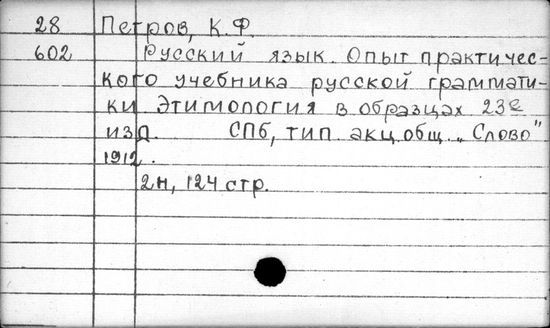 28 Петров, К.Ф.
602 Русский язык. Опыт практичес-
кого учебника русской граммати-
ки Этимология в образцах 23е
изд. СПб, тип. акц. общ. „Слово"
1912.
2н, 124 стр.